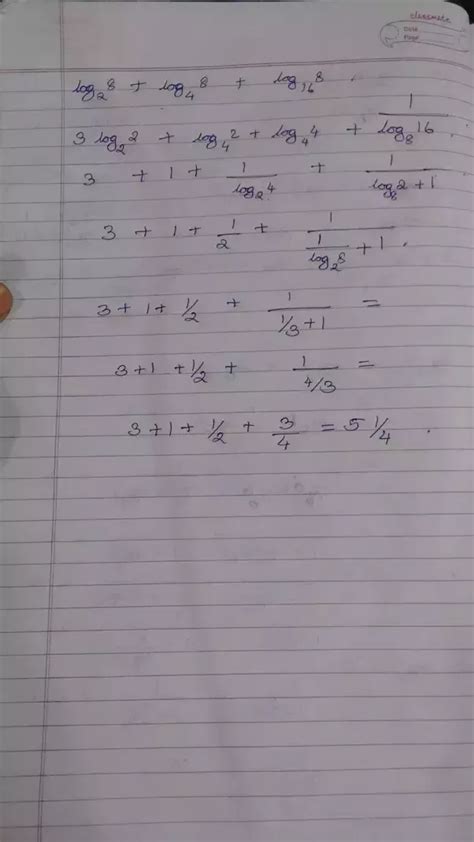 classmate
Date
Page
log₂8 + log₄8 + log₁₆8 .
3 log₂2 + log₄2 + log₄4 + 1/log₈16 .
3 + 1 + 1/log₂4 + 1/(log₈2 + 1)
3 + 1 + 1/2 + 1/(1/log₂8 + 1) .
3 + 1 + 1/2 + 1/(1/3 + 1) =
3 + 1 + 1/2 + 1/(4/3) =
3 + 1 + 1/2 + 3/4 = 5 1/4 .